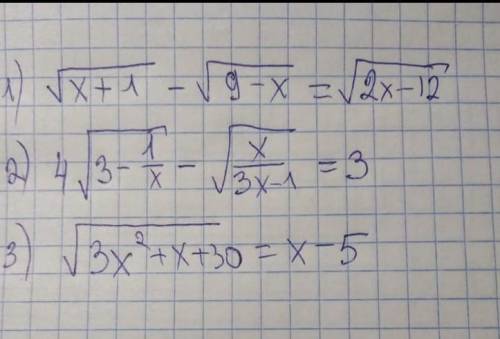 1) √(x+1) - √(9-x) = √(2x-12)
2) 4√(3 - 1/x) - √(x/(3x-1)) = 3
3) √(3x²+x+30) = x-5